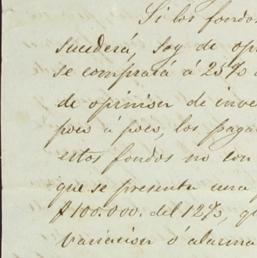 Si los fondos
sucederá, soy de opi
se comprará á 25%
de opinion de inve
poco á poco, los paga
estos fondos no con
que se presenta una
$100.000. del 12%, qu
variacion ó alarma